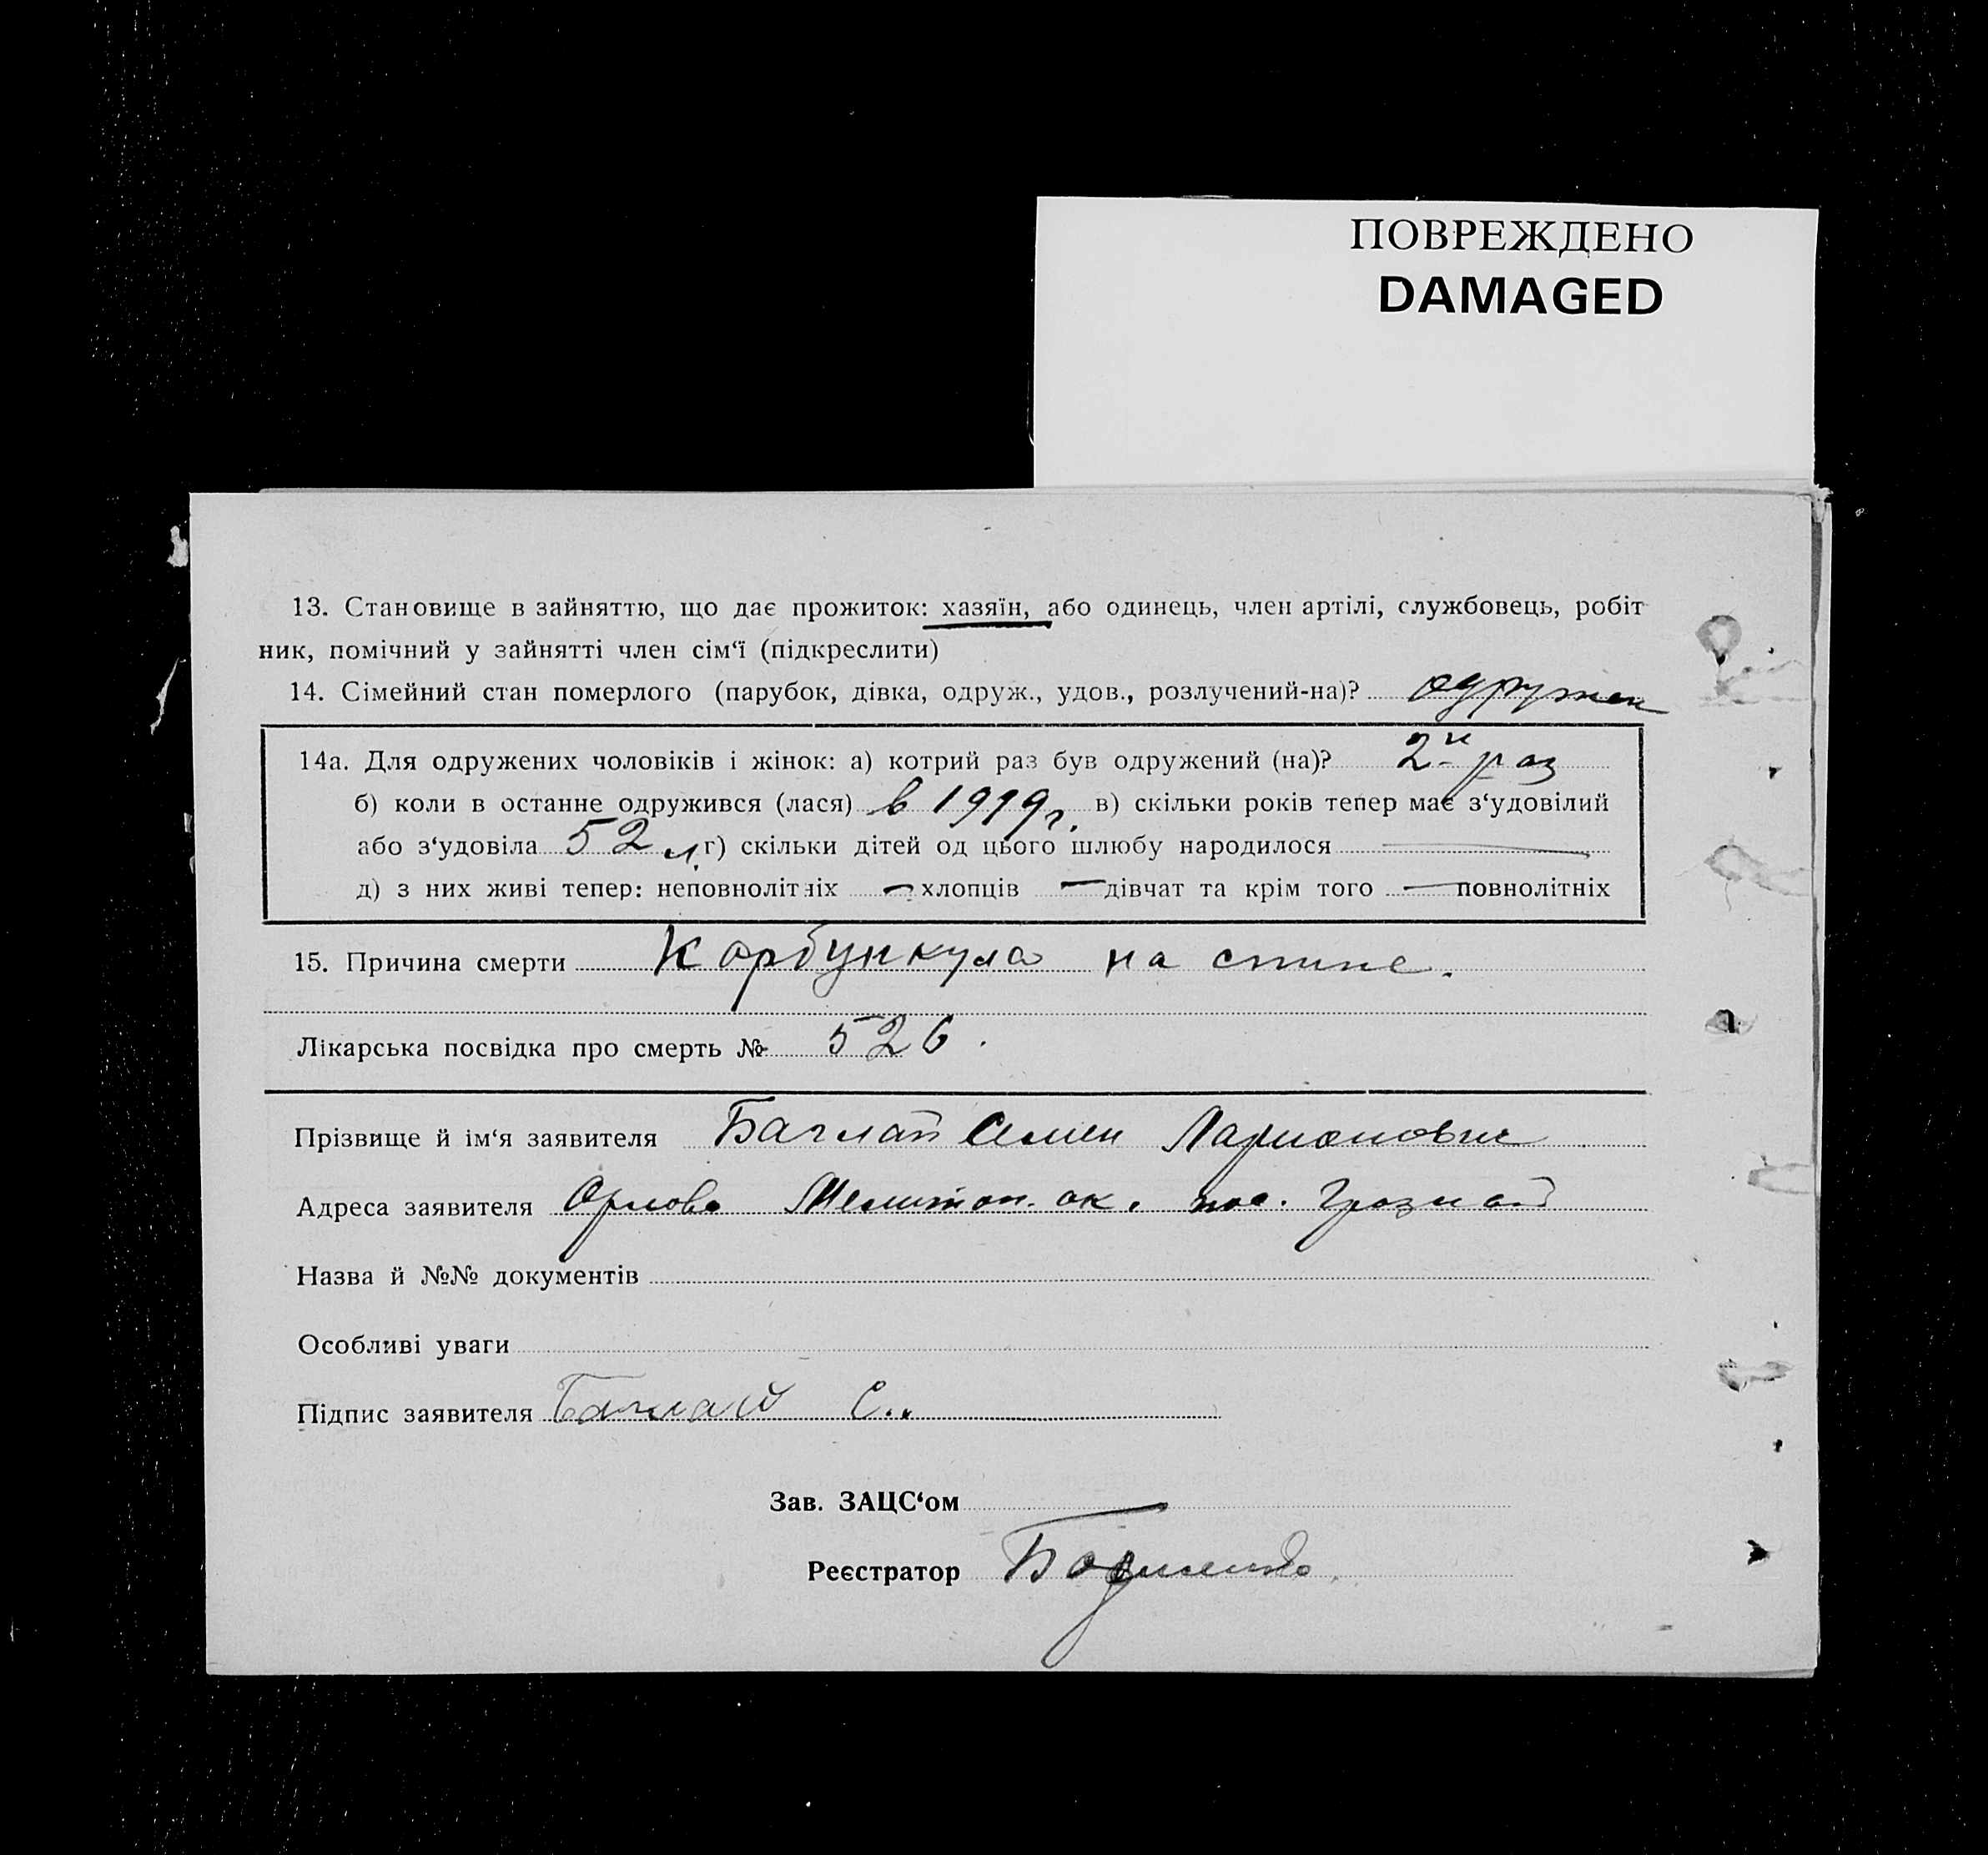 ПОВРЕЖДЕНО
DAMAGED
13. Становище в зайняттю, що дає прожиток: хазяїн, або одинець, член артілі, службовець, робіт
ник, помічний у зайнятті член сім‘ї (підкреслити)
14. Сімейний стан померлого (парубок, дівка, одруж., удов., розлучений-на)? одружен
14а. Для одружених чоловіків і жінок: а) котрий раз був одружений (на)? 2й раз
б) коли в останне одружився (лася) в 1919 г. в) скільки років тепер має з‘удовілий
або з‘удовіла 52 л. г) скільки дітей од цього шлюбу народилося —
д) з них живі тепер: неповнолітніх — хлопців — дівчат та крім того — повнолітніх
15. Причина смерти Карбункула на спине.
Лікарська посвідка про смерть № 526.
Прізвище й ім‘я заявителя Баглай Семен Ларионович
Адреса заявителя Орлово Мелитоп. ок. пос. Грозной
Назва й №№ документів
Особливі уваги
Підпис заявителя Баглай С..
Зав. ЗАЦС‘ом
Реєстратор